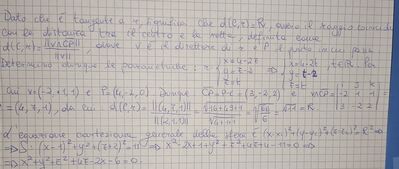 Dato che è tangente a r, significa che d(C,r)=R, ovvero il raggio coincide
con la distanza tra il centro e la retta, definita come
d(C,r)= ||v∧CP|| / ||v||, dove v è il direttore di r e P il punto
Determino dunque le parametriche: r {x=4-2t y=t-2 z=t t∈R
Qui v=(-2,1,1) e P=(4,-2,0). Dunque CP=P-C=(3,-2,2) e v∧CP= |i j k -2 1 1 3 -2 2| =
=(4,7,1), da cui d(C,r)= ||(4,7,1)|| / ||(-2,1,1)|| = √16+49+1 / √4+1+1 = √66/6 = √11 = R.
L'equazione cartesiana generale della sfera è (x-x₀)²+(y-y₀)²+(z-z₀)²=R² ⇒
⇒ S: (x-1)²+y²+(z+2)²=11 ⇒ x²-2x+1+y²+z²+4z+4-11=0 ⇒
⇒ x²+y²+z²+4z-2x-6=0.